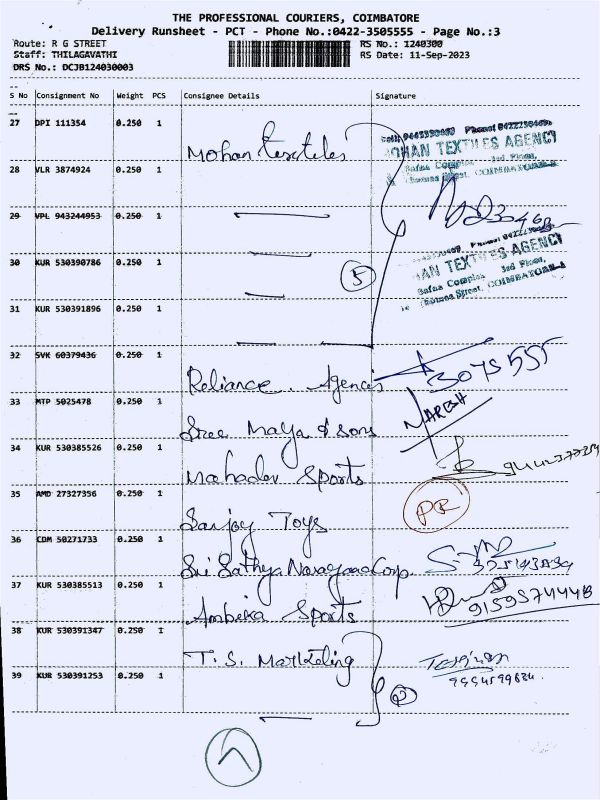 THE PROFESSIONAL COURIERS, COIMBATORE
Delivery Runsheet - PCT - Phone No.:0422-3505555 - Page No.:3
Route: R G STREET RS No.: 1240300
Staff: THILAGAVATHI RS Date: 11-Sep-2023
DRS No.: DCJB124030003
S No Consignment No Weight PCS Consignee Details Signature
27 DPI 111354 0.250 1 Mohan Textiles
MOHAN TEXTILES AGENCY
Safaa Complex 3rd Floor,
Thomas Street, COIMBATORE-1
28 VLR 3874924 0.250 1
29 VPL 943244953 0.250 1
30 KUR 530390786 0.250 1 5
HAN TEXTILES AGENCY
Safaa Complex 3rd Floor,
Thomas Street, COIMBATORE-1
31 KUR 530391896 0.250 1
32 SVK 60379436 0.250 1 Reliance Agencies 3075555
33 MTP 5025478 0.250 1 Sree Maya & Sons NARESH
34 KUR 530385526 0.250 1 Mahadev Sports
35 AMD 27327356 0.250 1 Sanjoy Toys
36 CDM 50271733 0.250 1 Sri Sathya Narayana Corp.
37 KUR 530385513 0.250 1 Ambika Sports 9159574448
38 KUR 530391347 0.250 1 T. S. Marketing
39 KUR 530391253 0.250 1 2